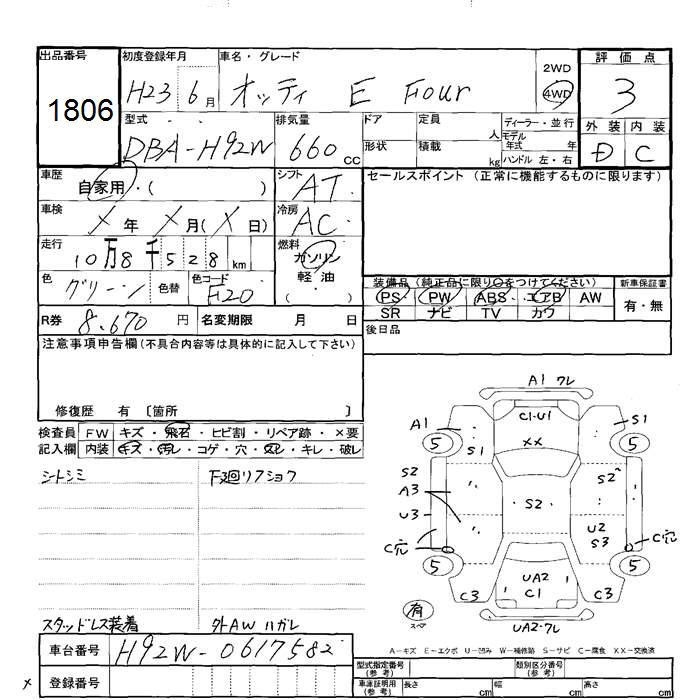 出品番号 初度登録年月 車名・グレード 評価点
1806 H23 6月 オッティ E Four 2WD 4WD 3
型式 排気量 ドア 定員 人 ディーラー・並行 外装 内装
DBA-H92W 660cc 形状 積載 kg モデル年式 年 ハンドル 左・右 D C
車歴 自家用・( ) シフト AT セールスポイント (正常に機能するものに限ります)
車検 X年 X月(X日) 冷房 AC
走行 10万8千528km 燃料 ガソリン 軽油
色 グリーン 色替 色コード F20 ( )
装備品 (純正品に限り○をつけてください) 新車保証書
PS PW ABS エアB AW 有・無
SR ナビ TV カワ
R券 8.670円 名変期限 月 日 後日品
注意事項申告欄(不具合内容等は具体的に記入して下さい)
修復歴 有 〔箇所 〕
検査員 FW キズ・飛石・ヒビ割・リペア跡・×要
記入欄 内装 キズ・汚レ・コゲ・穴・スレ・キレ・破レ
シートシミ
スタッドレス装着 外AWハガレ
A1 ワレ
C1・U1
XX
A1 S1
5 5
S1
S2 S2
A3
S2
U3 U2
S3
C穴 C穴
5 5
UA2
C1
C3 C3
有
スペア
UA2・ワレ
A-キズ E-エクボ U-凹み W-補修跡 S-サビ C-腐食 XX-交換済
車台番号 H92W-0617582
登録番号
型式指定番号(参考) 類別区分番号(参考)
車庫証明用(参考) 長さ cm 幅 cm 高さ cm